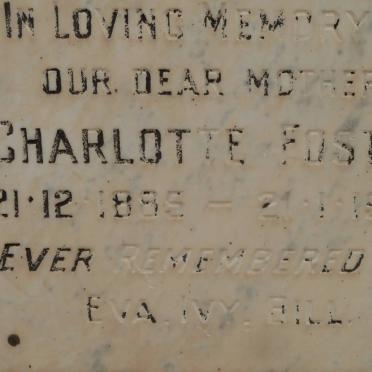 IN LOVING MEMORY
OUR DEAR MOTHER
CHARLOTTE FOST
21·12 1885 — 21·1·1
EVER REMEMBERED
EVA, IVY, BILL.